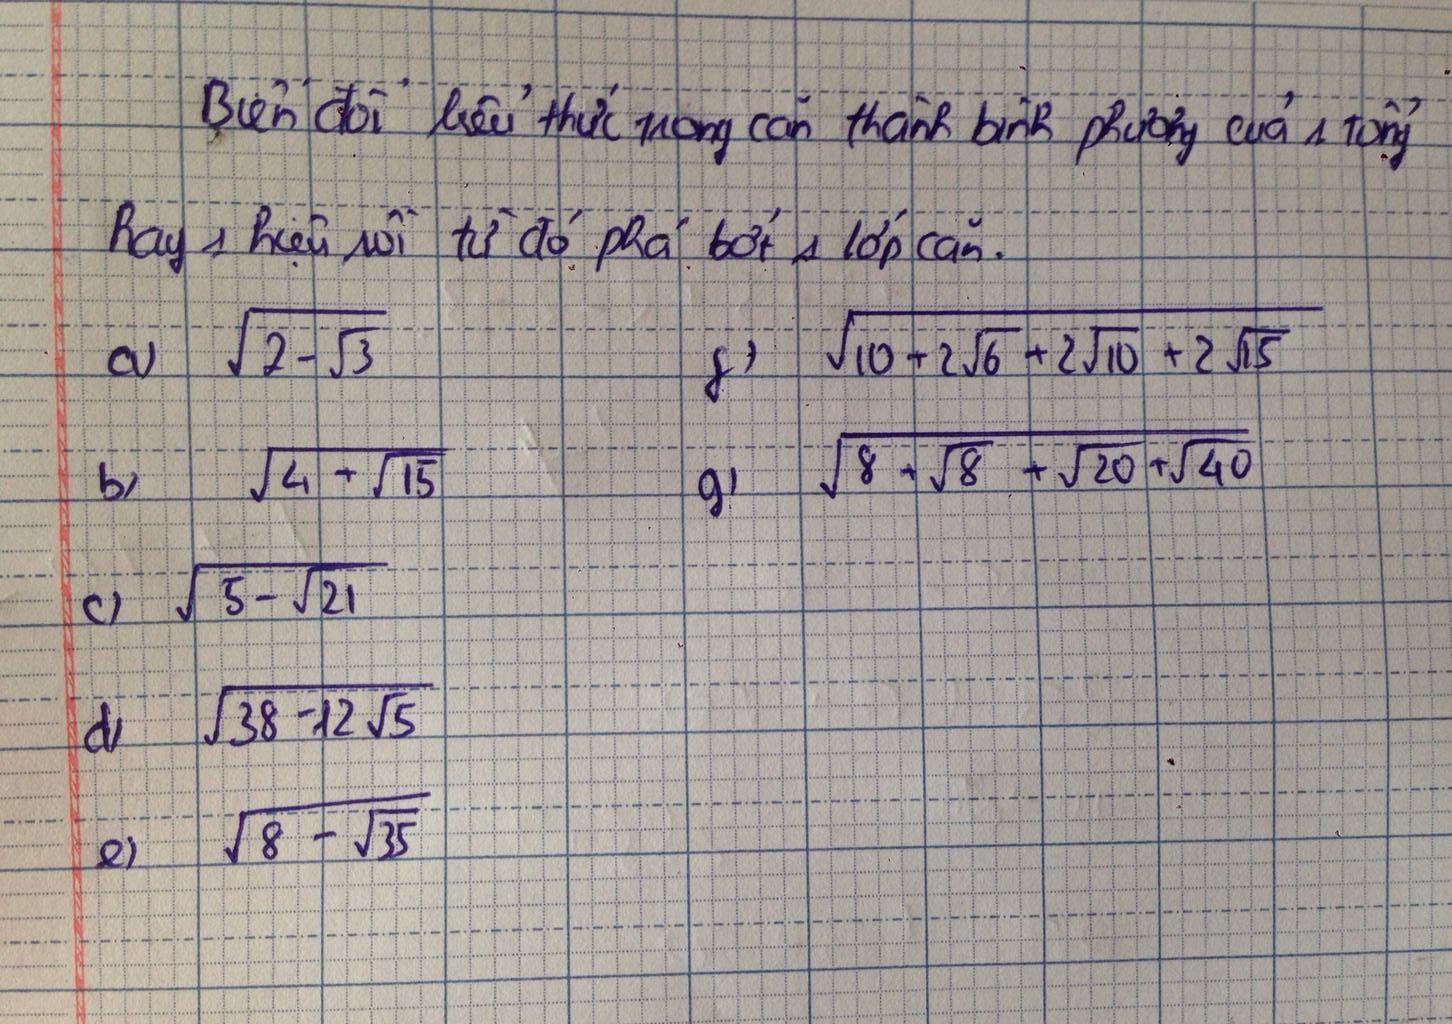 Biến đổi biểu thức trong căn thành bình phương của 1 tổng
hay 1 hiệu rồi từ đó phá bớt 1 lớp căn.
a) √(2 - √3)
b) √(4 + √15)
c) √(5 - √21)
d) √(38 - 12√5)
e) √(8 - √35)
f) √(10 + 2√6 + 2√10 + 2√15)
g) √(8 + √8 + √20 + √40)